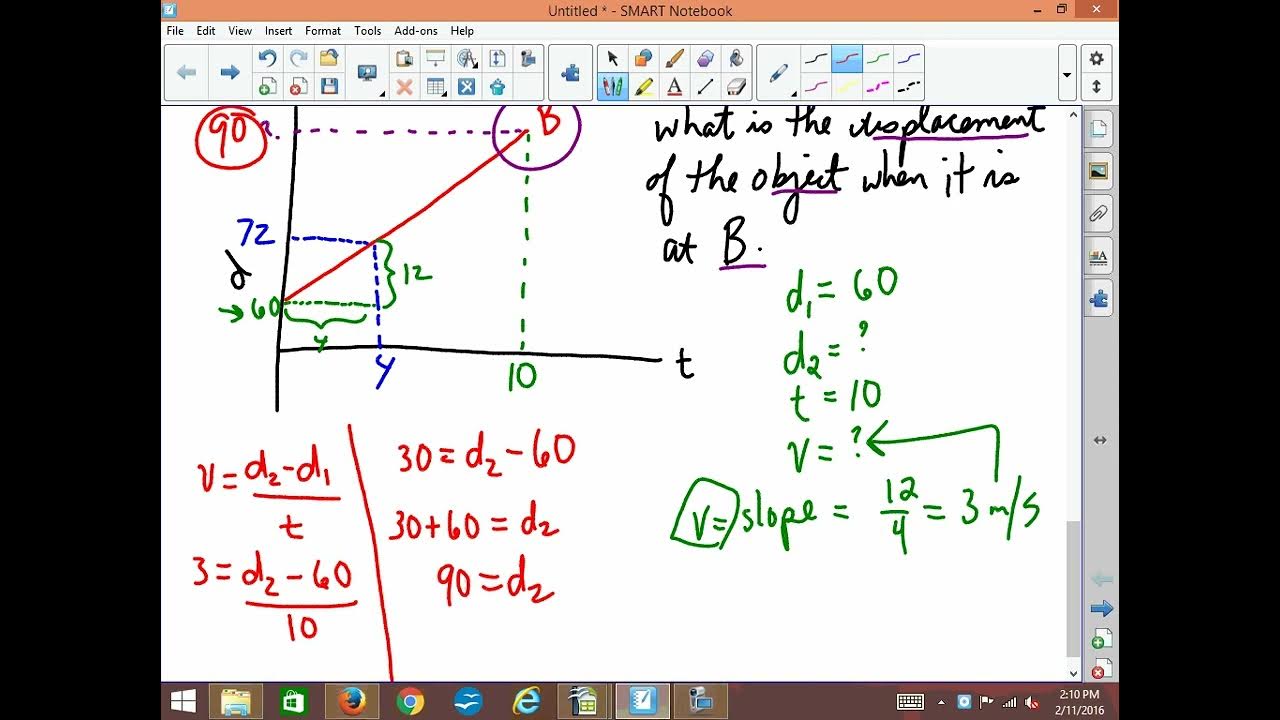 Untitled * - SMART Notebook
File Edit View Insert Format Tools Add-ons Help
90 ?. B
72
d
12
→60
4
4 10 t
what is the displacement
of the object when it is
at B.
d₁ = 60
d₂ = ?
t = 10
v = ?
v = slope = 12/4 = 3 m/s
v = d₂-d₁
t
3 = d₂-60
10
30 = d₂-60
30+60 = d₂
90 = d₂
2:10 PM
2/11/2016